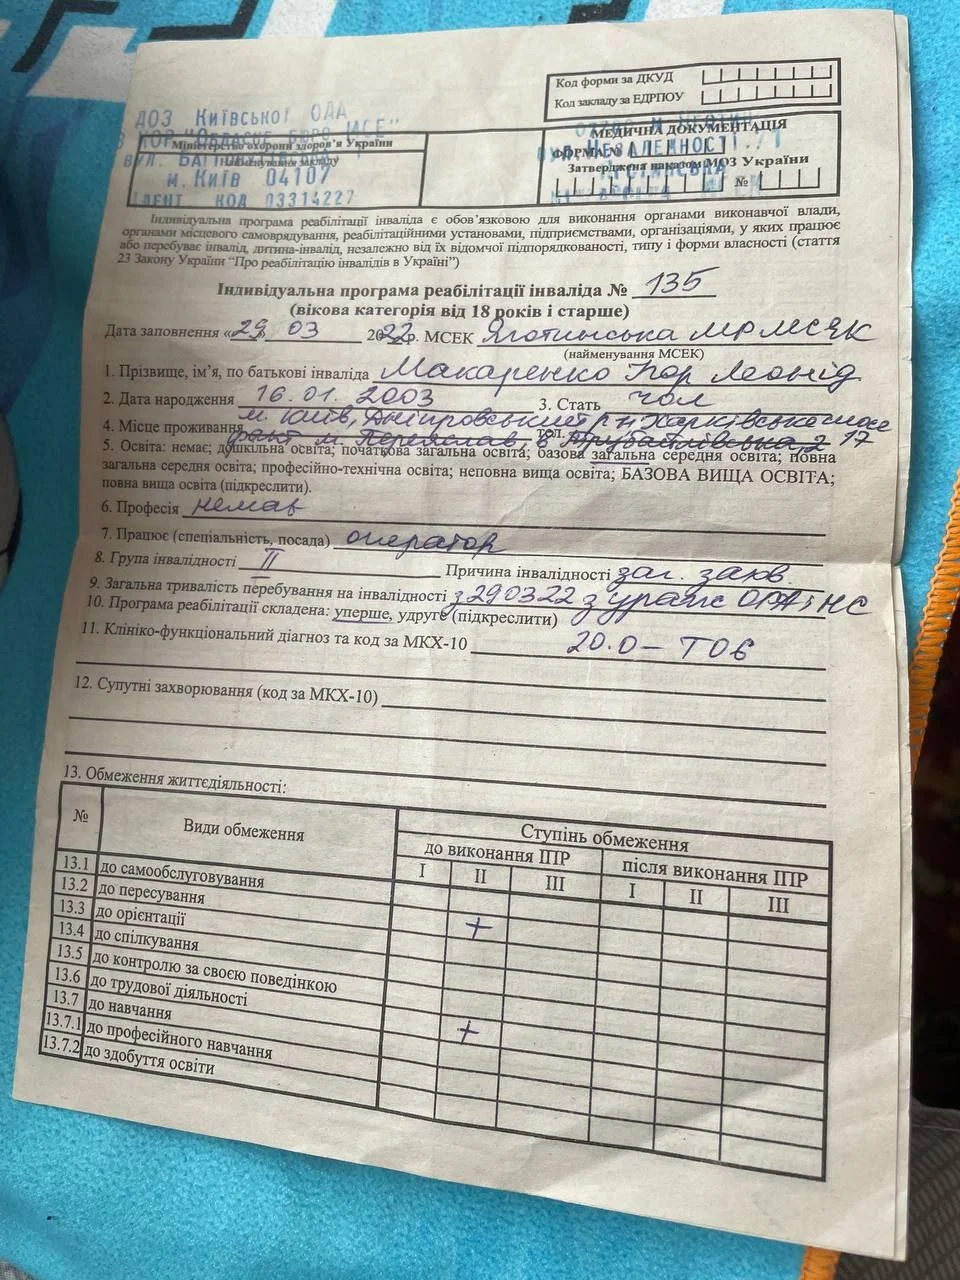 Код форми за ДКУД
Код закладу за ЄДРПОУ
ДОЗ Київської ОДА
Міністерство охорони здоров'я України
Найменування закладу
м. Київ 04107
код 03314227
МЕДИЧНА ДОКУМЕНТАЦІЯ
ФОРМА №
Затверджена наказом МОЗ України
№
Індивідуальна програма реабілітації інваліда є обов'язковою для виконання органами виконавчої влади,
органами місцевого самоврядування, реабілітаційними установами, підприємствами, організаціями, у яких працює
або перебуває інвалід, дитина-інвалід, незалежно від їх відомчої підпорядкованості, типу і форми власності (стаття
23 Закону України “Про реабілітацію інвалідів в Україні”)
Індивідуальна програма реабілітації інваліда № 135
(вікова категорія від 18 років і старше)
Дата заповнення «29» 03 2022р. МСЕК Яготинська МР МСЕК
(найменування МСЕК)
1. Прізвище, ім'я, по батькові інваліда Макаренко Ігор Леонід
2. Дата народження 16.01.2003 3. Стать чол
м. Київ, Дніпровський р-н, Харківське шосе
4. Місце проживання факт м. Переяслав, в. Трубайлівська, 2 17
5. Освіта: немає; дошкільна освіта; початкова загальна освіта; базова загальна середня освіта; повна
загальна середня освіта; професійно-технічна освіта; неповна вища освіта; БАЗОВА ВИЩА ОСВІТА;
повна вища освіта (підкреслити).
6. Професія немає
7. Працює (спеціальність, посада) оператор
8. Група інвалідності II Причина інвалідності заг. захв.
9. Загальна тривалість перебування на інвалідності з 290322 з ураж ОРА і НС
10. Програма реабілітації складена: уперше, удруге (підкреслити)
11. Клініко-функціональний діагноз та код за МКХ-10 20.0 – Т06
12. Супутні захворювання (код за МКХ-10)
13. Обмеження життєдіяльності:
№ Види обмеження Ступінь обмеження
до виконання ІПР після виконання ІПР
I II III I II III
13.1 до самообслуговування
13.2 до пересування +
13.3 до орієнтації
13.4 до спілкування
13.5 до контролю за своєю поведінкою
13.6 до трудової діяльності +
13.7 до навчання
13.7.1 до професійного навчання
13.7.2 до здобуття освіти